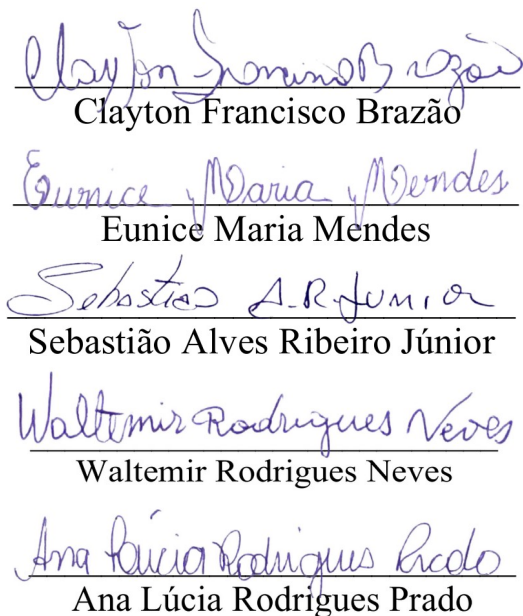 Clayton Francisco Brazão
Clayton Francisco Brazão
Eunice Maria Mendes
Eunice Maria Mendes
Sebastião A.R. Junior
Sebastião Alves Ribeiro Júnior
Waltemir Rodrigues Neves
Waltemir Rodrigues Neves
Ana Lúcia Rodrigues Prado
Ana Lúcia Rodrigues Prado